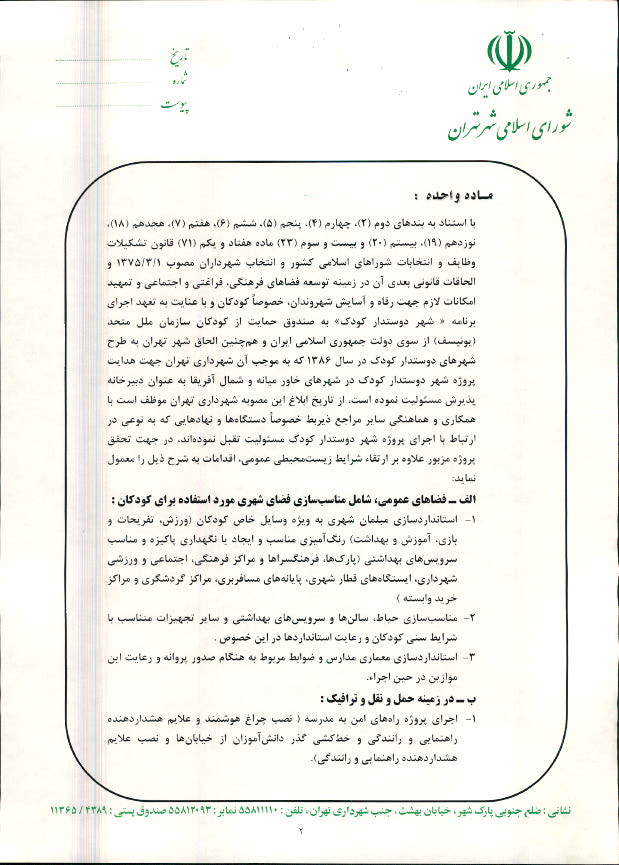 جمهوری اسلامی ایران
شورای اسلامی شهر تهران
تاریخ
شماره
پیوست
مـاده واحده :
با استناد به بندهای دوم (۲)، چهارم (۴)، پنجم (۵)، ششم (۶)، هفتم (۷)، هجدهم (۱۸)،
نوزدهم (۱۹)، بیستم (۲۰) و بیست و سوم (۲۳) ماده هفتاد و یکم (۷۱) قانون تشکیلات
وظایف و انتخابات شوراهای اسلامی کشور و انتخاب شهرداران مصوب ۱۳۷۵/۳/۱ و
الحاقات قانونی بعدی آن در زمینه توسعه فضاهای فرهنگی، فراغتی و اجتماعی و تمهید
امکانات لازم جهت رفاه و آسایش شهروندان، خصوصاً کودکان و با عنایت به تعهد اجرای
برنامه « شهر دوستدار کودک» به صندوق حمایت از کودکان سازمان ملل متحد
(یونیسف) از سوی دولت جمهوری اسلامی ایران و هم‌چنین الحاق شهر تهران به طرح
شهرهای دوستدار کودک در سال ۱۳۸۶ که به موجب آن شهرداری تهران جهت هدایت
پروژه شهر دوستدار کودک در شهرهای خاور میانه و شمال آفریقا به عنوان دبیرخانه
پذیرش مسئولیت نموده است، از تاریخ ابلاغ این مصوبه شهرداری تهران موظف است با
همکاری و هماهنگی سایر مراجع ذیربط خصوصاً دستگاه‌ها و نهادهایی که به نوعی در
ارتباط با اجرای پروژه شهر دوستدار کودک مسئولیت تقبل نموده‌اند، در جهت تحقق
پروژه مزبور علاوه بر ارتقاء شرایط زیست‌محیطی عمومی، اقدامات به شرح ذیل را معمول
نماید:
الف ــ فضاهای عمومی، شامل مناسب‌سازی فضای شهری مورد استفاده برای کودکان :
۱- استانداردسازی مبلمان شهری به ویژه وسایل خاص کودکان (ورزش، تفریحات و
بازی، آموزش و بهداشت) رنگ‌آمیزی مناسب و ایجاد یا نگهداری پاکیزه و مناسب
سرویس‌های بهداشتی (پارک‌ها، فرهنگسراها و مراکز فرهنگی، اجتماعی و ورزشی
شهرداری، ایستگاه‌های قطار شهری، پایانه‌های مسافربری، مراکز گردشگری و مراکز
خرید وابسته )
۲- مناسب‌سازی حیاط، سالن‌ها و سرویس‌های بهداشتی و سایر تجهیزات متناسب با
شرایط سنی کودکان و رعایت استانداردها در این خصوص .
۳- استانداردسازی معماری مدارس و ضوابط مربوط به هنگام صدور پروانه و رعایت این
موازین در حین اجراء.
ب ــ در زمینه حمل و نقل و ترافیک :
۱- اجرای پروژه راه‌های امن به مدرسه ( نصب چراغ هوشمند و علایم هشداردهنده
راهنمایی و رانندگی و خط‌کشی گذر دانش‌آموزان از خیابان‌ها و نصب علایم
هشداردهنده راهنمایی و رانندگی).
نشانی : ضلع جنوبی پارک شهر، خیابان بهشت، جنب شهرداری تهران، تلفن : ۵۵۸۱۱۱۱۰ نمابر : ۵۵۸۱۲۰۹۳ صندوق پستی : ۴۳۸۹ / ۱۱۳۶۵
۲